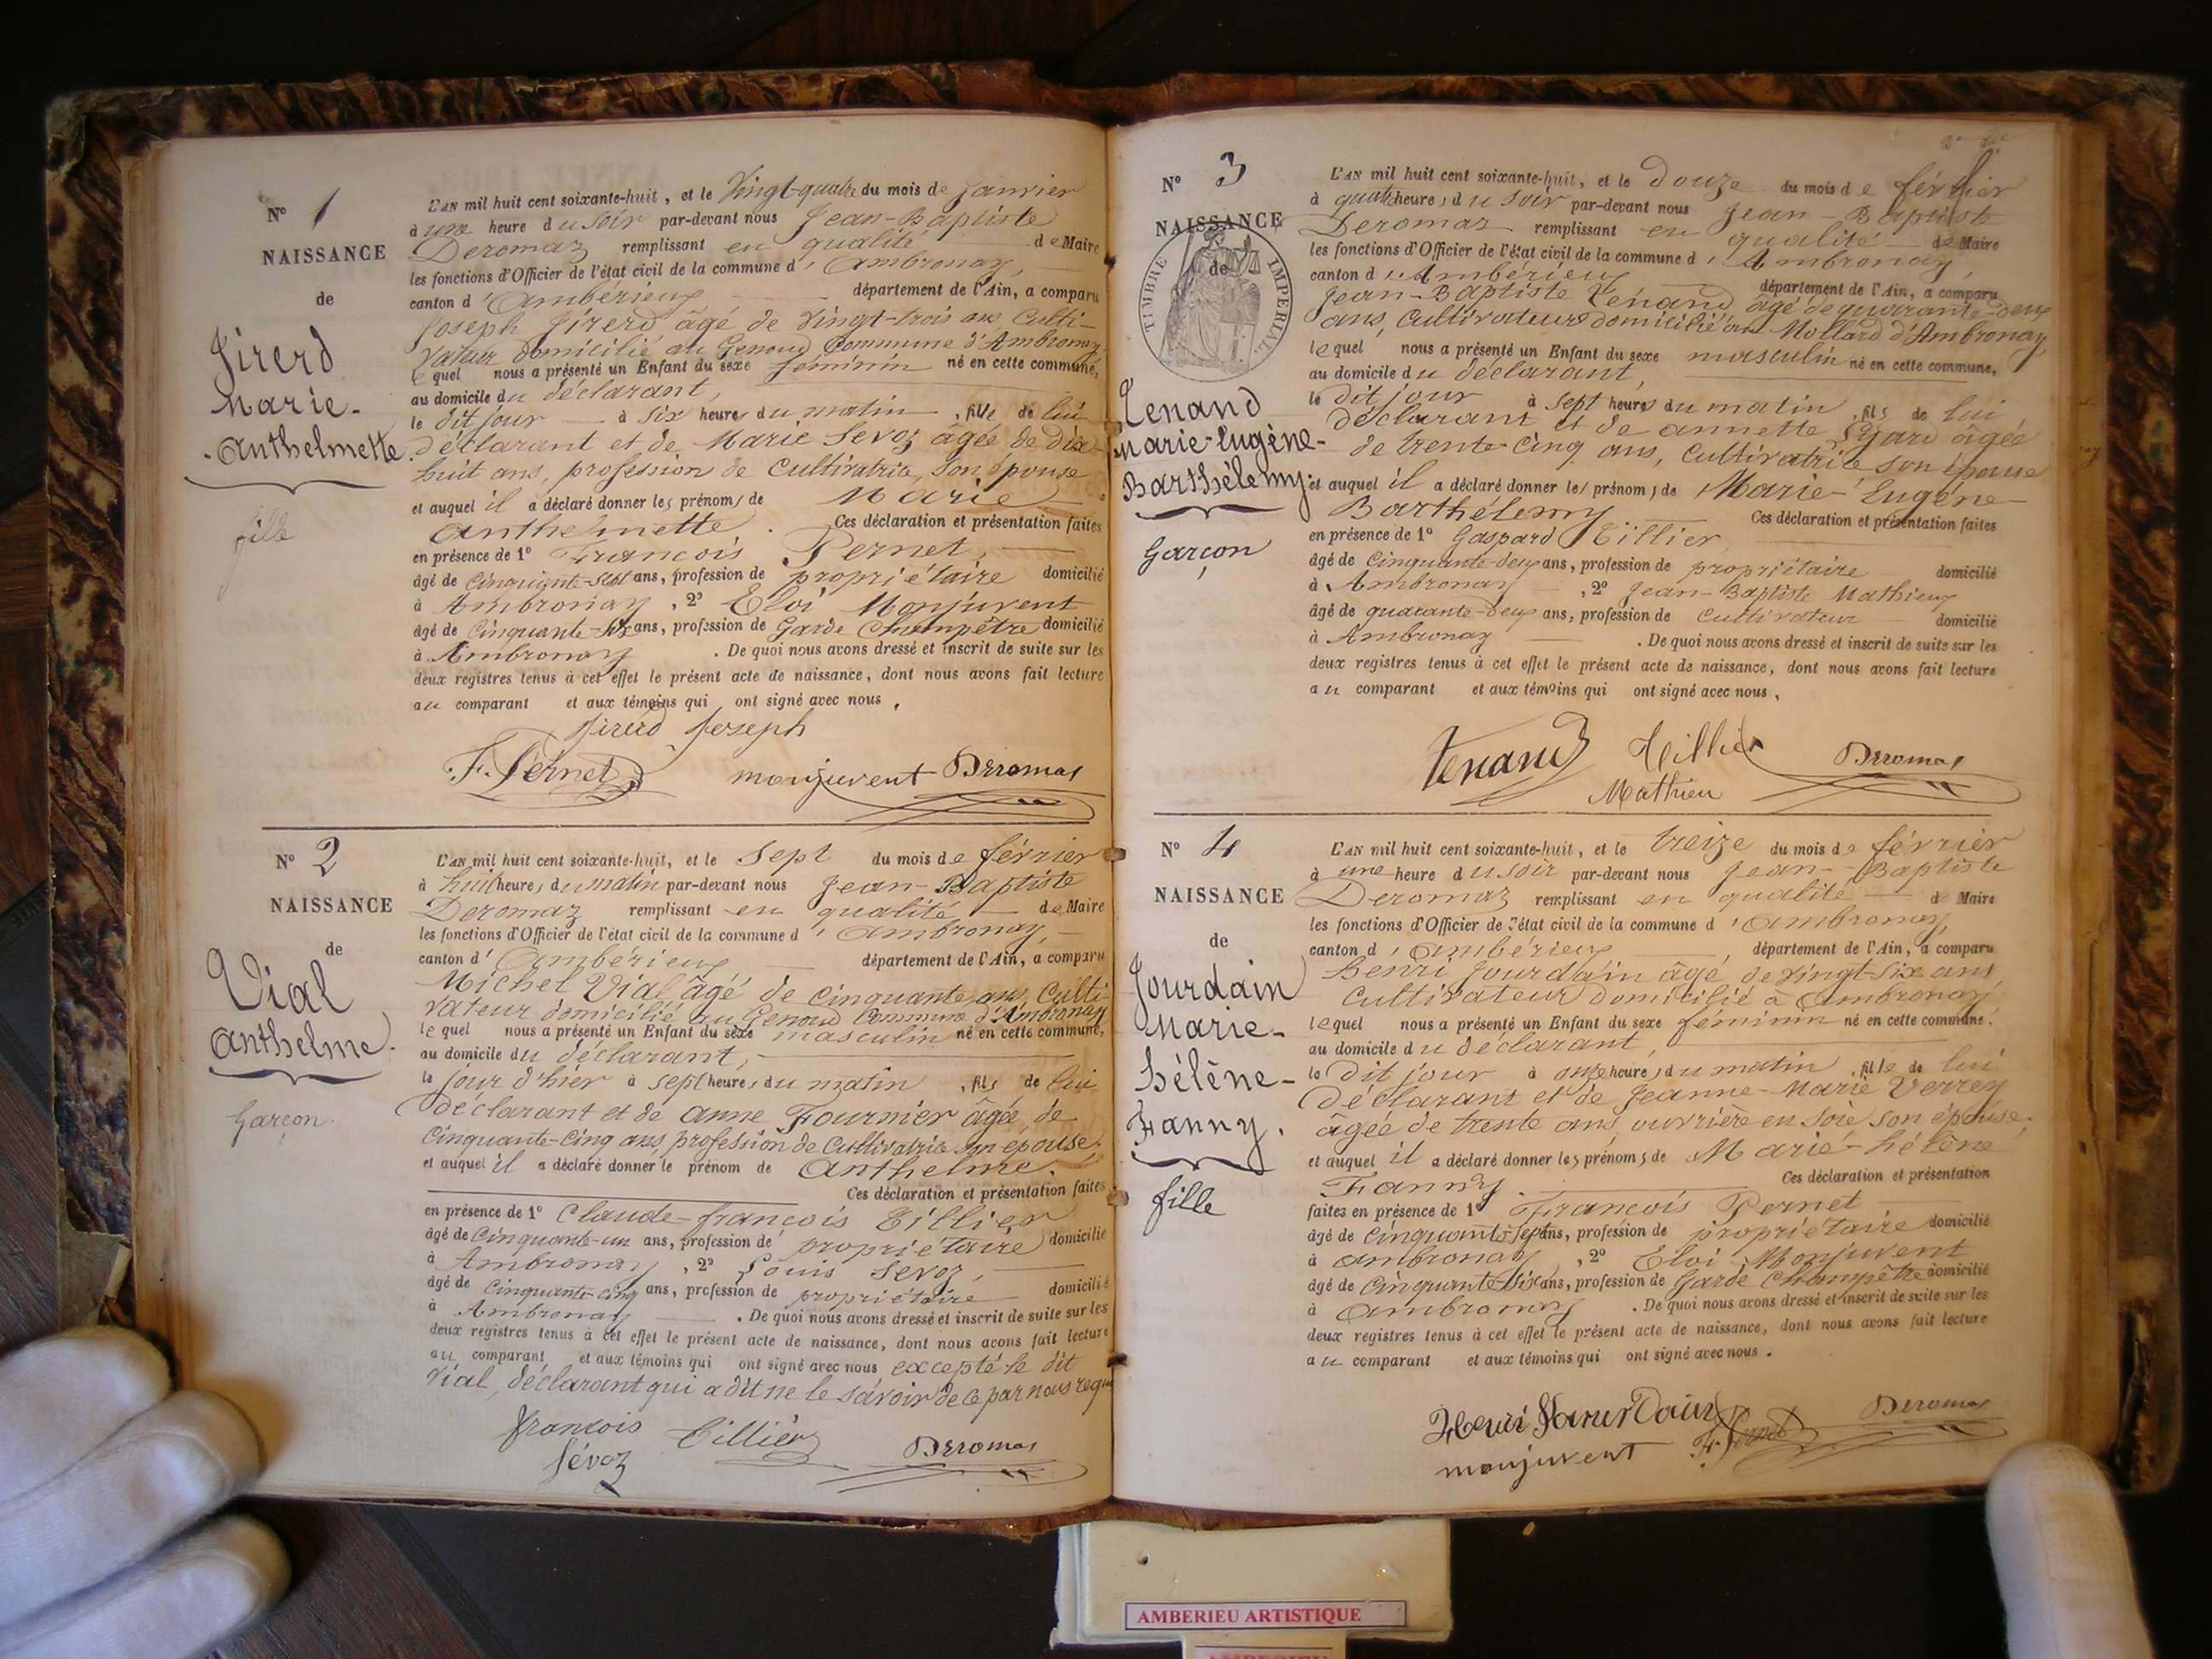 Nº 1
NAISSANCE
de
Jirerd
Marie-
Anthelmette
fille
L'AN mil huit cent soixante-huit, et le Vingt-quatre du mois de janvier
à une heure du soir par-devant nous Jean-Baptiste
Deromaz remplissant en qualité de Maire
les fonctions d'Officier de l'état civil de la commune d'Ambronay,
canton d'Ambérieux département de l'Ain, a comparu
Joseph Jirerd âgé de Vingt-trois ans Culti-
vateur domicilié au Genoud Commune d'Ambronay
lequel nous a présenté un Enfant du sexe féminin né en cette commune,
au domicile du déclarant,
le dit jour à six heures du matin, fille de lui
déclarant et de Marie Sevoz âgée de dix-
huit ans, profession de Cultivatrice, son épouse
et auquel il a déclaré donner les prénoms de Marie
Anthelmette. Ces déclaration et présentation faites
en présence de 1º François Pernet,
âgé de Cinquante-sept ans, profession de propriétaire domicilié
à Ambronay, 2º Eloi Monjuvent
âgé de Cinquante-six ans, profession de Garde Champêtre domicilié
à Ambronay. De quoi nous avons dressé et inscrit de suite sur les
deux registres tenus à cet effet le présent acte de naissance, dont nous avons fait lecture
au comparant et aux témoins qui ont signé avec nous,
Jirerd Joseph
F. Pernet monjuvent Deromas
Nº 2
NAISSANCE
de
Vial
Anthelme.
Garçon.
L'AN mil huit cent soixante-huit, et le Sept du mois de février
à huit heures du matin par-devant nous Jean-Baptiste
Deromaz remplissant en qualité de Maire
les fonctions d'Officier de l'état civil de la commune d'Ambronay,
canton d'Ambérieux département de l'Ain, a comparu
Michel Vial âgé de cinquante ans, Culti-
vateur domicilié au Genoud Commune d'Ambronay
lequel nous a présenté un Enfant du sexe masculin né en cette commune,
au domicile du déclarant,
le jour d'hier à sept heures du matin, fils de lui
déclarant et de Anne Fournier âgée de
Cinquante-cinq ans, profession de Cultivatrice son épouse,
et auquel il a déclaré donner le prénom de Anthelme.
Ces déclaration et présentation faites
en présence de 1º Claude-françois Tillier
âgé de Cinquante-un ans, profession de propriétaire domicilié
à Ambronay, 2º Louis Sevoz,
âgé de Cinquante-cinq ans, profession de propriétaire domicilié
à Ambronay. De quoi nous avons dressé et inscrit de suite sur les
deux registres tenus à cet effet le présent acte de naissance, dont nous avons fait lecture
au comparant et aux témoins qui ont signé avec nous excepté le dit
Vial, déclarant qui a dit ne le savoir de ce par nous requ
françois Tillier
Sévoz Deromas
Nº 3
NAISSANCE
de
TIMBRE IMPERIAL
Tenand
Marie-Eugène-
Barthélemy.
Garçon
L'AN mil huit cent soixante-huit, et le Douze du mois de février
à quatre heures du soir par-devant nous Jean-Baptiste
Deromaz remplissant en qualité de Maire
les fonctions d'Officier de l'état civil de la commune d'Ambronay,
canton d'Ambérieux département de l'Ain, a comparu
Jean-Baptiste Tenand âgé de quarante-deux
ans, Cultivateur domicilié au Mollard d'Ambronay,
lequel nous a présenté un Enfant du sexe masculin né en cette commune,
au domicile du déclarant,
le dit jour à sept heures du matin, fils de lui
déclarant et de annette âgée
de trente-cinq ans, Cultivatrice son épouse
et auquel il a déclaré donner les prénoms de Marie-Eugène-
Barthélemy Ces déclaration et présentation faites
en présence de 1º Gaspard Tillier,
âgé de Cinquante-deux ans, profession de propriétaire domicilié
à Ambronay, 2º Jean-Baptiste Mathieux
âgé de quarante-deux ans, profession de Cultivateur domicilié
à Ambronay. De quoi nous avons dressé et inscrit de suite sur les
deux registres tenus à cet effet le présent acte de naissance, dont nous avons fait lecture
au comparant et aux témoins qui ont signé avec nous,
Tenand Tillier Deromas
Mathieu
Nº 4
NAISSANCE
de
Jourdain
Marie-
Hélène-
Fanny.
fille
L'AN mil huit cent soixante-huit, et le treize du mois de février
à une heure du soir par-devant nous Jean-Baptiste
Deromaz remplissant en qualité de Maire
les fonctions d'Officier de l'état civil de la commune d'Ambronay,
canton d'Ambérieux, département de l'Ain, a comparu
henri Jourdain âgé de Vingt-six ans
Cultivateur domicilié à Ambronay
lequel nous a présenté un Enfant du sexe féminin né en cette commune,
au domicile du déclarant,
le dit jour à onze heures du matin, fille de lui
déclarant et de Jeanne-Marie Verrey
âgée de trente ans, ouvrière en soie, son épouse,
et auquel il a déclaré donner les prénoms de Marie-hélène
Fanny. Ces déclaration et présentation
faites en présence de 1º François Pernet
âgé de cinquante-sept ans, profession de propriétaire domicilié
à ambronay, 2º Eloi Monjuvent
âgé de Cinquante-six ans, profession de Garde Champêtre domicilié
à ambronay. De quoi nous avons dressé et inscrit de suite sur les
deux registres tenus à cet effet le présent acte de naissance, dont nous avons fait lecture
au comparant et aux témoins qui ont signé avec nous.
Henri Jourdain F. Pernet Deromas
monjuvent
AMBERIEU ARTISTIQUE
AMBERIEU